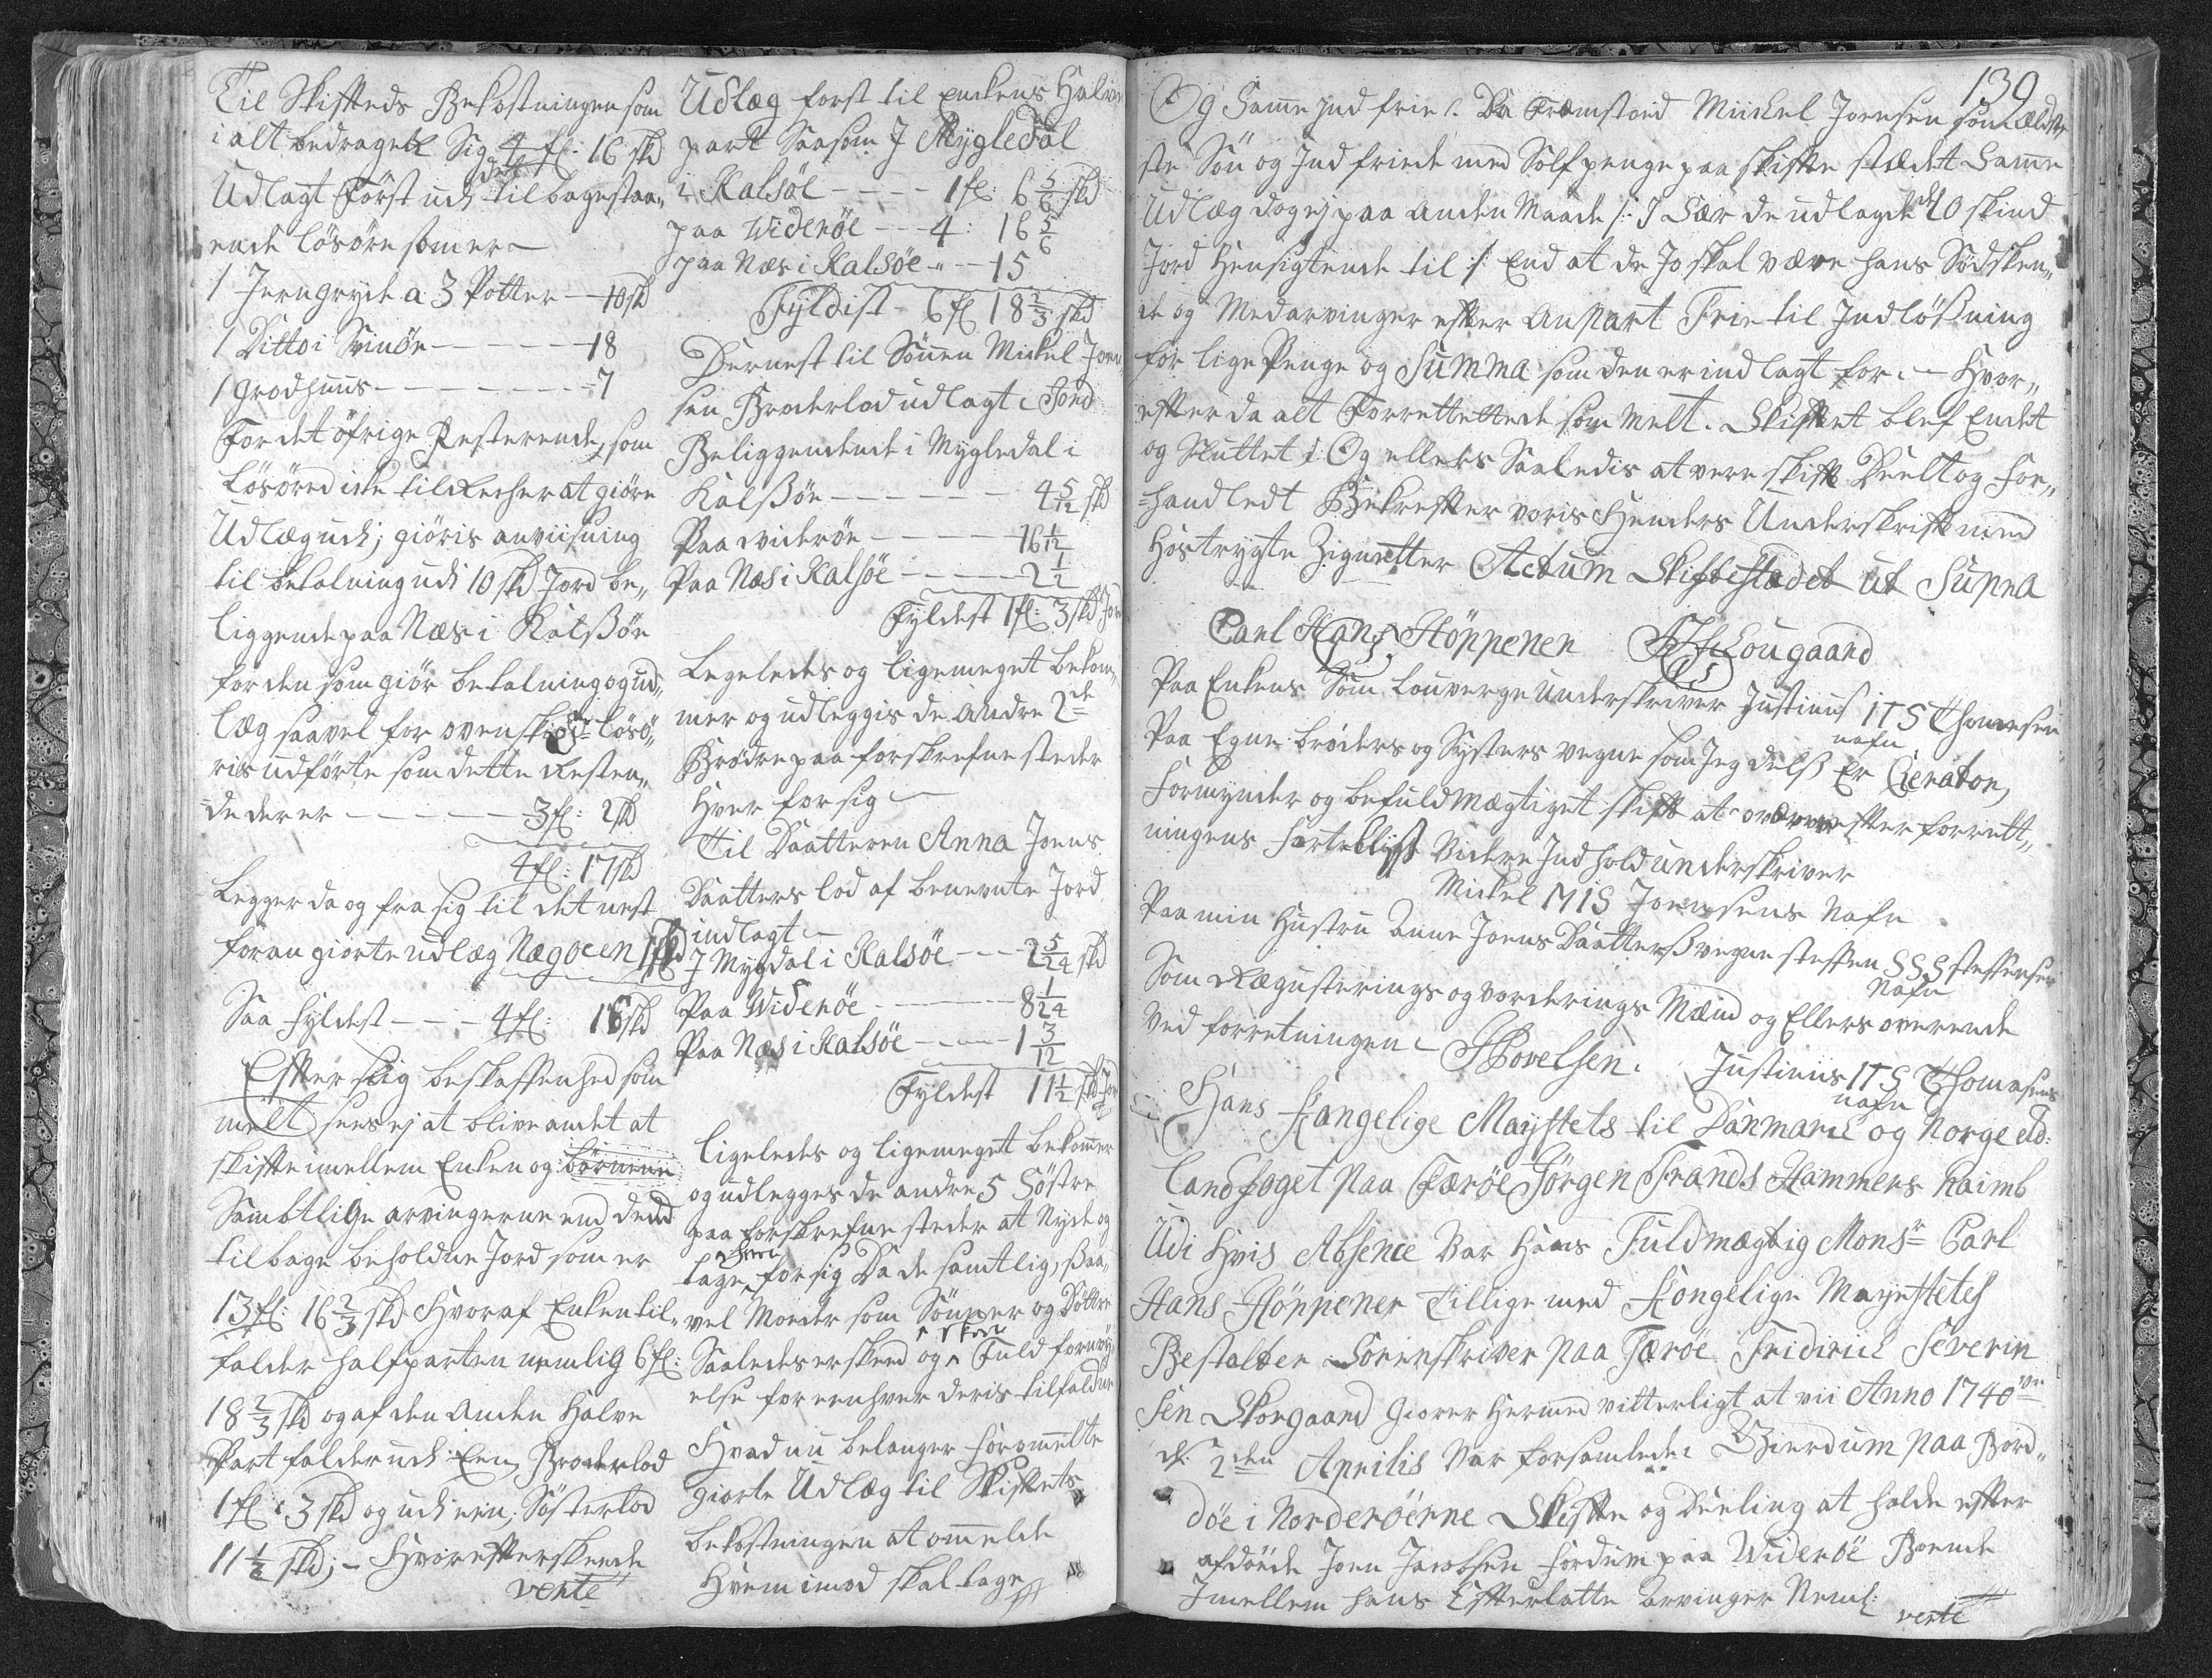 Til Skifteds Bekostningen som
i alt bedraget Sig 4 fl: 16 skd
Udlagt Först udi det tilbagestaa„
ende lösöre som er
1 Jerngryde a 3 Potter — 10 skd
1 Ditto i Svinöe — 18
1 grodhuus — 7
For det öfrige Resterende, som
Lösöred icke tilrecher at giöre
Udlæg udi; giöris anviisning
til betalning udi 10 skd Jord be„
liggende paa Næs i Kalsöe
for den som giör betalning og ud„
læg saavel for ovenskr: lösö„
ris udförte som dette Resten„
de der er — 3 fl: 2 skd
4 fl: 17 skd
Legger da og fra sig til det nest
foran giorte udlæg Nægoeen 1 skd
Saa fyldest — 4 fl: 16 skd
Efter slig beskaffenhed som
melt sees ej at blive andet at
skifte imellem Enken og börnene
Sambtlige arvingerne end ded
tilbage beholdne Jord som er
13 fl: 16 2/3 skd hvoraf Enken til„
falder halfparten nemlig 6 fl:
18 2/3 skd og af den anden halve
Part falder udi Een, Broderlod
1 fl: 3 skd og udi een, Sösterlod
11 1/2 skd; – Hvorefter skeede
verte
Udlæg först til Enckens Halve
part Saasom J Mygledal
i Kalsöe — 1 fl: 6 5/6 skd
paa Wideröe — 4: 16 5/6
paa Næs i Kalsöe „ — 15
Fyldist – 6 fl 18 2/3 skd
Dernest til Sönnen Mickel Joen„
sen Broderlod udlagt i Jord
Beliggendende i Mygledal i
Kalsöe — 4 5/12 skd
Paa wideröe — 16 1/12
Paa Næs i Kalsöe — 2 1/2
Fyldest 1 fl: 3 skd Jor
Ligeledes og ligemeget bekom„
mer og udleggis de andre 2de
Brödre paa forskrefne steder
hver for sig
Til Daatteren Anna Joens
Daatters lod af benevnte Jord
indlagt
J Mygdal i Kalsöe — 2 5/24 skd
Paa Wideröe — 8 1/24
Paa Næs i Kalsöe — 1 3/12
Fyldest 11 1/2 skd Jor
Ligeledes og ligemeget bekommer
og udlegges de andre 5 Söstre
paa forskrefne steder at Nyde og
tage hver for sig Da de samtlig, saa„
vel Moeder som Sönner og Döttre
Saaledes er skeed og Fuld fornöy„
else for eenhver deris tilfaldne
Hvad nu belanger forommelte
giorte Udlæg til Skiftets
bekostningen at ommelde
Hvem imod skal tage
139
Og Samme Jnd frie /. Da Fremstoed Mickel Joensen som ældst„
ste Sön og Jnd friede med Sölf penge paa skifte stædet samme
Udlæg dog ej paa anden Maade /: J Sær de udlagde 10 skind
Jord Hensigtende til :/ End at de jo skal være hans Södsken„
de og Medarvinger efter Anpart Frie til Jndlösning
for lige Penge og Summa som den er ind lagt for. – Hvor„
efter da alt Forrettettede som melt. Skiftet blef Endet
og Sluttet /: Og ellers Saaledis at vere skift Deelt og for„
handledt Bekrefter voris Henders Underskrift med
Hostrygte Zignetter Actum Skiftestædet ut Supra
Carl Hans Höppener F S Skougaard
Paa Enkens Som Louverge Underskriver Justinus ITS Thomesen
nafn
Paa Egne bröders og Systers vegne som Jeg dels Er Curator,
Formynder og befuldmægtiget skift at oververe efter forrett„
ningens Videre Jndhold underskriver
Mickel MIS Joensens Nafn
Paa min Hustru Anne Joens Daatters vegne Steffen SSS Steffensen
Nafn
Som Rægusterings og vorderings Mænd og Ellers overende
ved forretningen – J Povelsen. Justinus ITS Thomasens
nafn
Hans Kongelige Mayestets til Danmark og Norge etc:
Landfoget paa Færöe Jörgen Frands Hammers haimb
Udi hvis Absence Var hans Fuldmægtig Monsr Carl
Hans Höppener tillige med Kongelige Mayestetes
Bestalter Sorenskriver paa Færöe Fridirich Severin
Sen Skougaard Giorer Hermed vitterligt at vii Anno 1740ve
d: 2den Aprilis Var forsamlede Gierdum paa Bord„
döe i Norderöerne Skifte og Deeling at holde efter
afdöde Joen Jacobsen fordum paa Wideröe Boende
Jmellem hans Efterlatte arvinger Neml:
verte